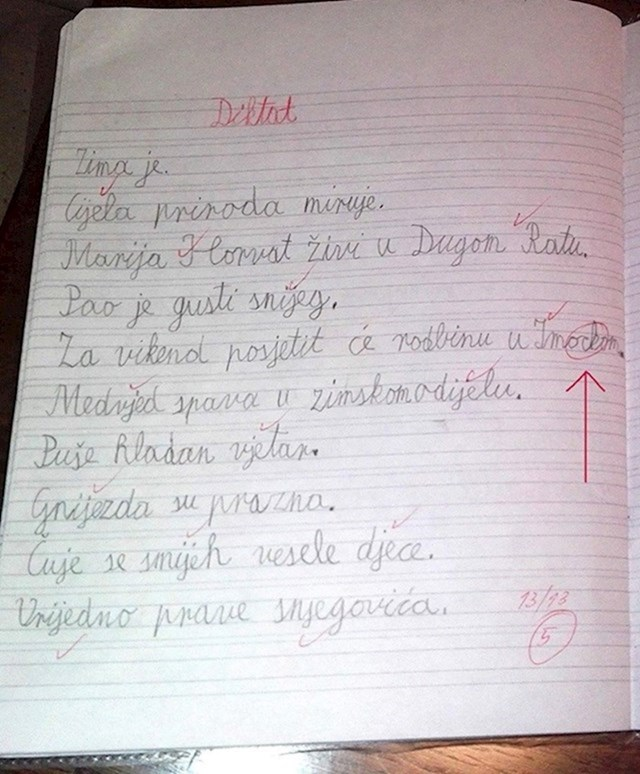 Diktat
Zima je.
Cijela priroda miruje.
Marija Horvat živi u Dugom Ratu.
Pao je gusti snijeg.
Za vikend posjetit će rodbinu u Imockom.
Medvjed spava u zimskomodijelu.
Puše hladan vjetar.
Gnijezda su prazna.
Čuje se smijeh vesele djece.
Vrijedno prave snjegovića.
13/13
5